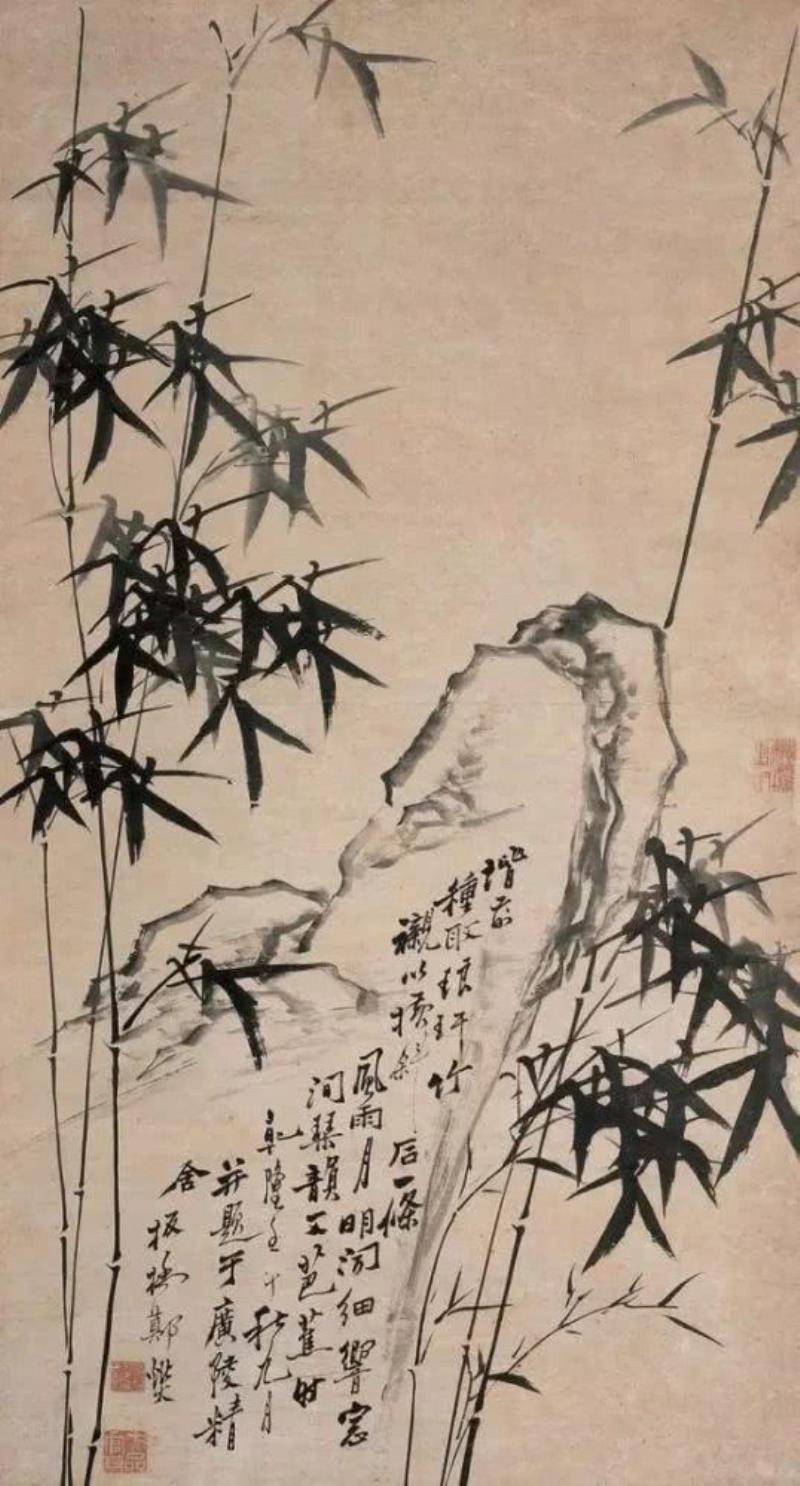 階前
種取琅玕竹
襯以橫斜石一條
風雨月明闲細響窓
间琴韻
芭蕉时
乾隆壬午秋九月
并題于廣陵精
舍板橋鄭燮